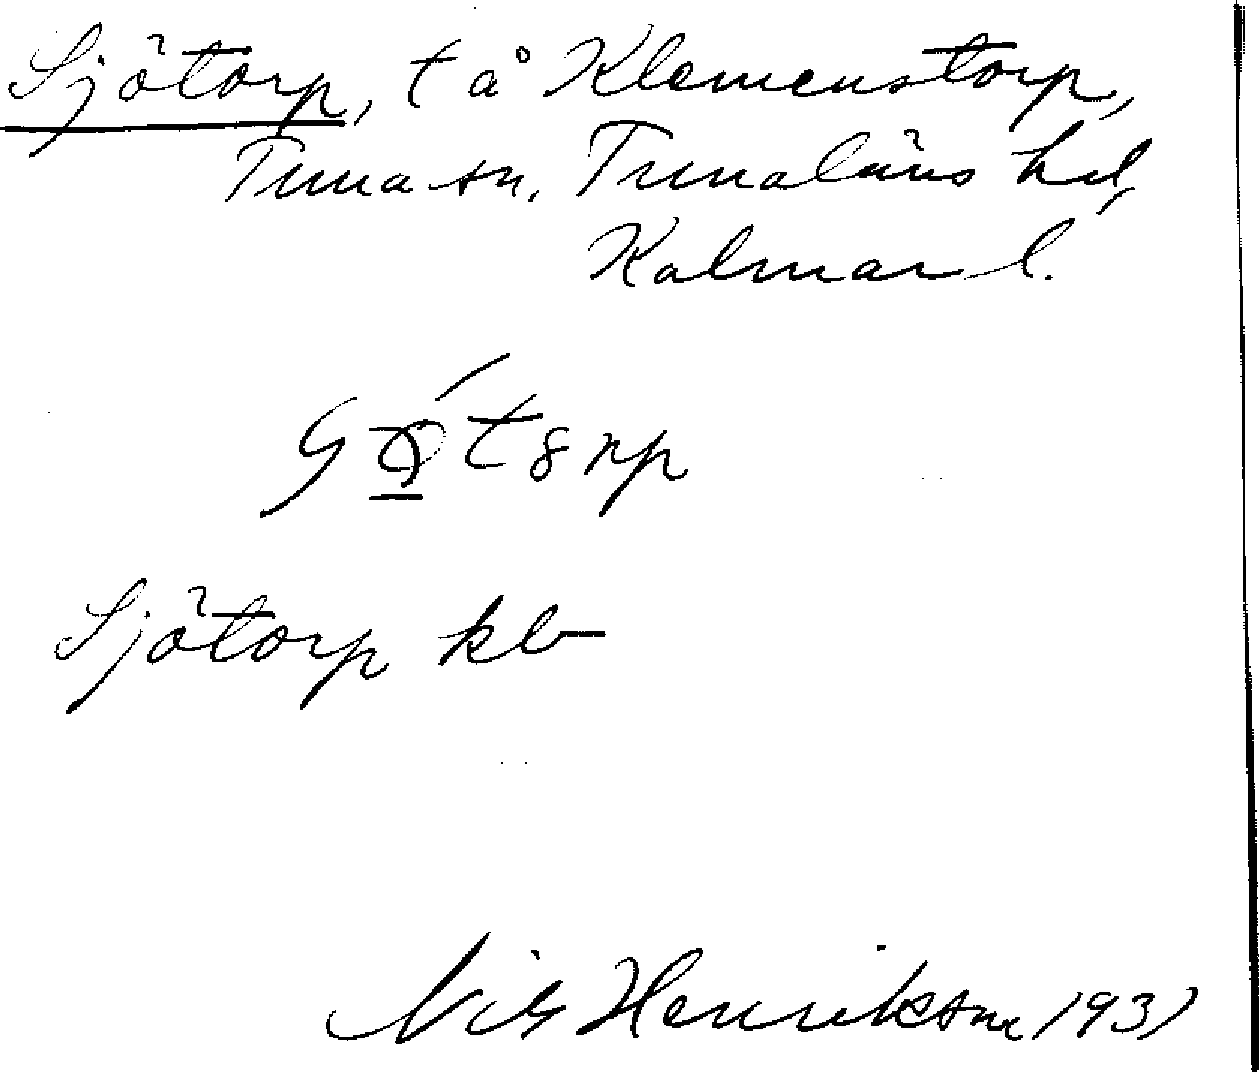 Sjötorp, t å Klemenstorp,
Tuna sn, Tunaläns hd,
Kalmar l.
Sjötorp kb
Nils Henrikson 1931